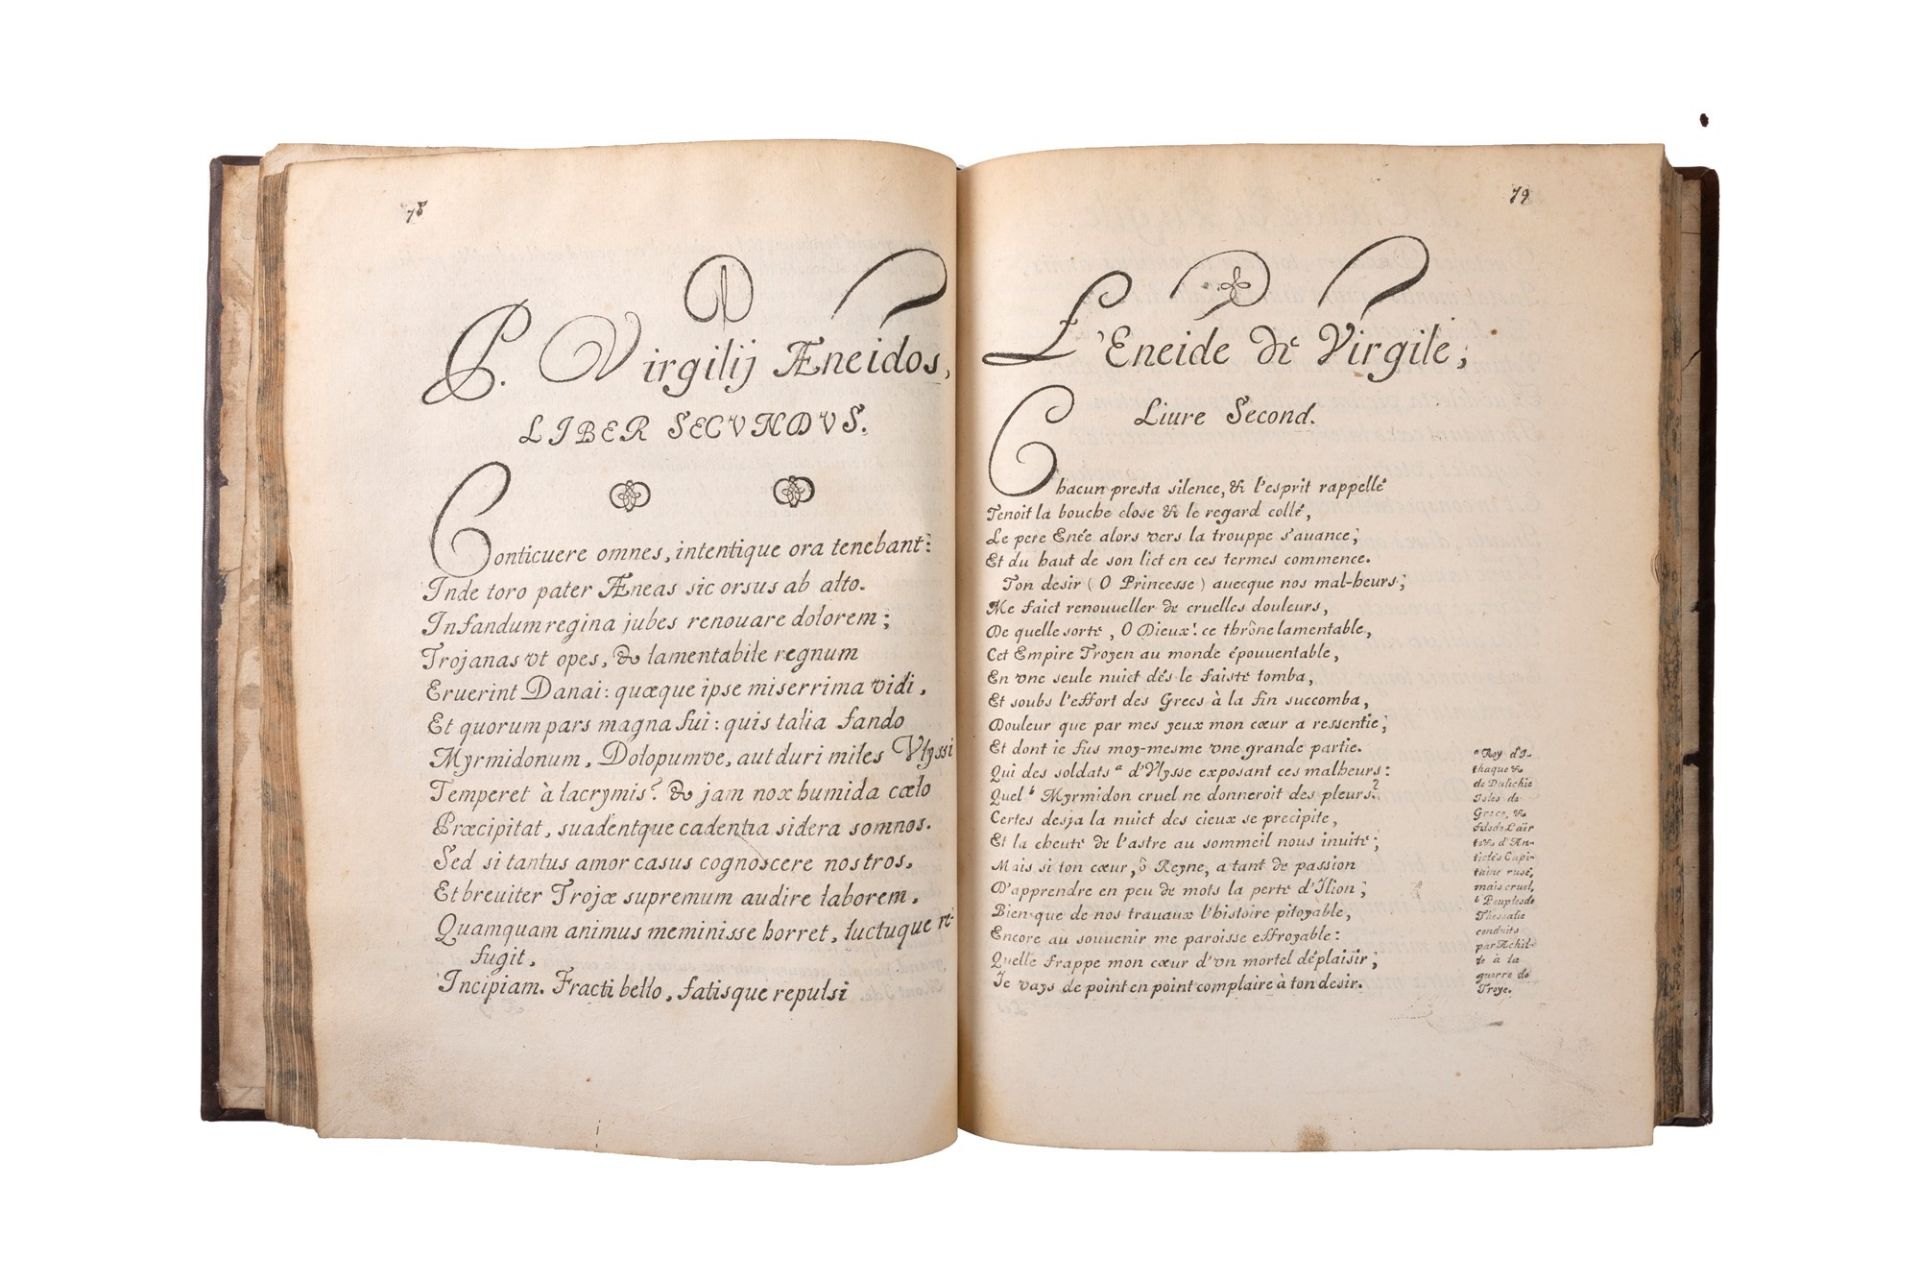 78
P. Virgilij Æneidos,
LIBER SECVNDVS.
Conticuere omnes, intentique ora tenebant:
Inde toro pater Æneas sic orsus ab alto.
Infandum regina jubes renouare dolorem;
Trojanas vt opes, & lamentabile regnum
Eruerint Danai: quæque ipse miserrima vidi,
Et quorum pars magna fui: quis talia fando
Myrmidonum, Dolopumve, aut duri miles Vlyssi
Temperet à lacrymis? & jam nox humida cœlo
Præcipitat, suadentque cadentia sidera somnos.
Sed si tantus amor casus cognoscere nostros,
Et breuiter Trojæ supremum audire laborem,
Quamquam animus meminisse horret, luctuque re-
fugit,
Incipiam. Fracti bello, fatisque repulsi
79
L'Eneide de Virgile,
Liure Second.
Chacun presta silence, & l'esprit rappellé
Tenoit la bouche close & le regard collé,
Le pere Enée alors vers la trouppe s'auance;
Et du haut de son lict en ces termes commence.
Ton desir (O Princesse) auecque nos mal-heurs;
Me faict renouueller de cruelles douleurs,
De quelle sorte, O Dieux! ce thrône lamentable,
Cet Empire Troyen au monde épouuentable,
En vne seule nuict dés le faiste tomba,
Et soubs l'effort des Grecs à la fin succomba,
Douleur que par mes yeux mon cœur a ressentie;
Et dont ie fus moy-mesme vne grande partie.
Qui des soldats a d'Vlysse exposant ces malheurs:
Quel b Myrmidon cruel ne donneroit des pleurs?
Certes desja la nuict des cieux se precipite,
Et la cheute de l'astre au sommeil nous inuite;
Mais si ton cœur, ô Reyne, a tant de passion
D'apprendre en peu de mots la perte d'Ilion;
Bien que de nos trauaux l'histoire pitoyable,
Encore au souuenir me paroisse effroyable:
Quelle frappe mon cœur d'vn mortel déplaisir;
Ie vays de point en point complaire à ton desir.
a Roy d'I-
thaque &
de Dulichie
Isles de
Grece, &
fils de Laër
te & d'An-
ticlés Capi-
taine rusé,
mais cruel,
b Peuples de
Thessalie
conduits
par Achil-
le à la
guerre de
Troye.